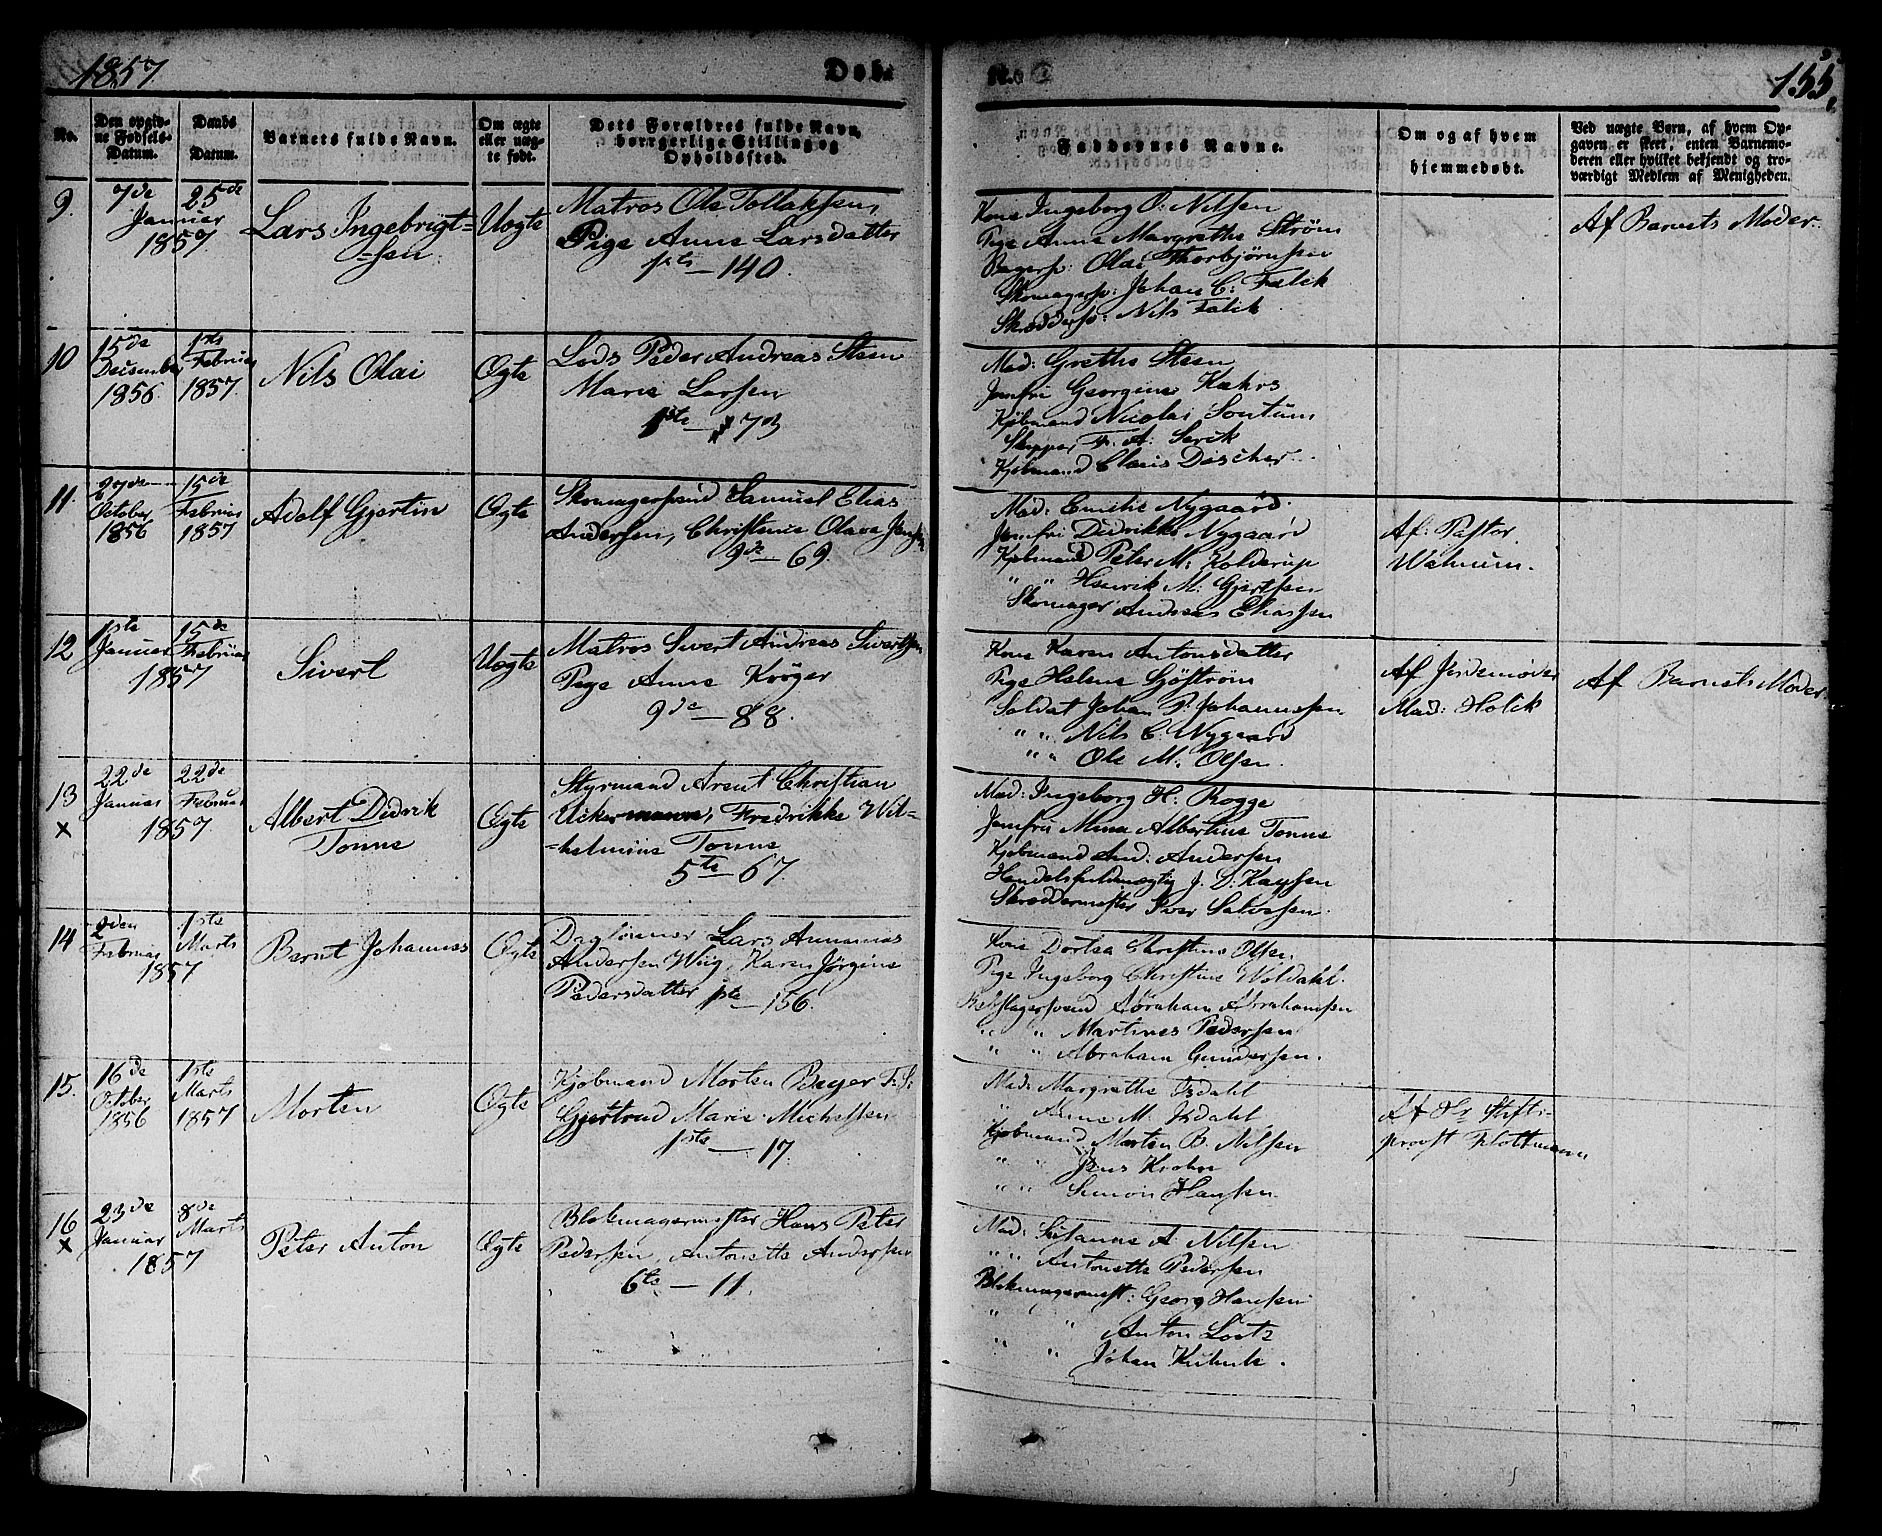 1857. Døbt
No. 155
No.
Den opgiv-
ne Fødsels-
Datum.
Daabs
Datum.
Barnets fulde Navn.
Om ægte
eller uæg-
te født.
Dets Forældres fulde Navn,
borgerlige Stilling og
Opholdssted.
Faddernes Navne.
Om og af hvem
hjemmedøbt.
Ved uægte Børn, af hvem Op-
gaven er skeet, enten Barnemo-
deren eller hvilket bekjendt og tro-
værdigt Medlem af Menigheden.
9.
7de
Januer
1857
25de
Lars Ingebrigt=
=sen.
Uægte
Matros Ole Tollaksen,
Pige Anne Larsdatter
1ste — 140.
Kone Ingeborg O. Nilsen
Pige Anna Margrethe Strøm
Bagersv: Olai Thorbjørnsen
Skomagersv: Johan C: Falck
Skrædersv: Nils Falck
Af Barnets Moder.
10
15de
December
1856
1ste
Februar
1857.
Nils Olai
Ægte
Lods Peder Andreas Steen
Marie Larsen
1ste — 73
Mad: Grethe Steen
Jomfru Georgine Kahrs
Kjøbmand Nicolai Sontum
Skipper F. A. Serck
Kjøbmand Claus Discher
11.
27de
October
1856
15de
Februar
1857
Adolf Gjertin
Ægte
Skomagersvend Samuel Elias
Andersen, Christense Olava Jensen
9de — 69.
Mad: Emelie Nygaard.
Jomfru Didrikke Nygaard
Kjøbmand Peter M. Kolderup
" " Henrik M. Gjertsen
Skomager Andreas Eliassen
Af: Pastor
Walnum.
12
1ste
Januer
1857
15de
Februar
Sivert
Uægte
Matros Sivert Andreas Sivertsen
Pige Anne Krøger
9de — 88.
Kone Karen Antonsdatter
Pige Helene Sjøstrøm
Soldat Johan P. Johannesen
" " Nils C. Nygaard
" " Ole M. Olsen.
Af Jordemoder
Mad: Holck
Af Barnets Moder
13
x
22de
Januar
1857.
22de
Februar
Albert Didrik
Tonne
Ægte
Styrmand Arent Christian
Uckermann, Fredrikke Wil=
=helmine Tonne
5te — 67
Mad: Ingeborg H. Rogge
Jomfru Mina Albertine Tonne
Kjøbmand And: Andersen
Handelsfuldmægtig J. D. Kaysen
Skræddermester Iver Salvesen.
14
2den
Februar
1857
1ste
Marts
Bernt Johannes
Ægte
Daglønner Lars Annanias
Andersen Wiig, Karen Jørgine
Pedersdatter 1ste — 156.
Kone Dortea Christine Olsen
Pige Ingeborg Christine Woldahl.
Rebslagersvend Abraham Abrahamsen
" " Martines Pedersen
" " Abraham Gundersen.
15.
16de
October
1856
1ste
Marts
1857
Morten
Ægte
Kjøbmand Morten Beyer F. S:
Gjertrud Marie Michelsen
1ste — 17
Mad: Margrethe Isdahl
" Anne M. Isdahl
Kjøbmand Morten B. Nilsen
" " Jens Krohn
" " Simon Hansen.
Af Hr Stifts-
provst Flottmann
16
x
23de
Januar
1857
8de
Marts
Peter Anton
Ægte
Blokmagermester Hans Peter
Pedersen, Antonette Andersen
6te — 11.
Mad: Susanne A. Nilsen
" " Antonette Pedersen
Blokmagermest: Georg Hansen
" " Anton Lootz
" " Johan Kuhnle.